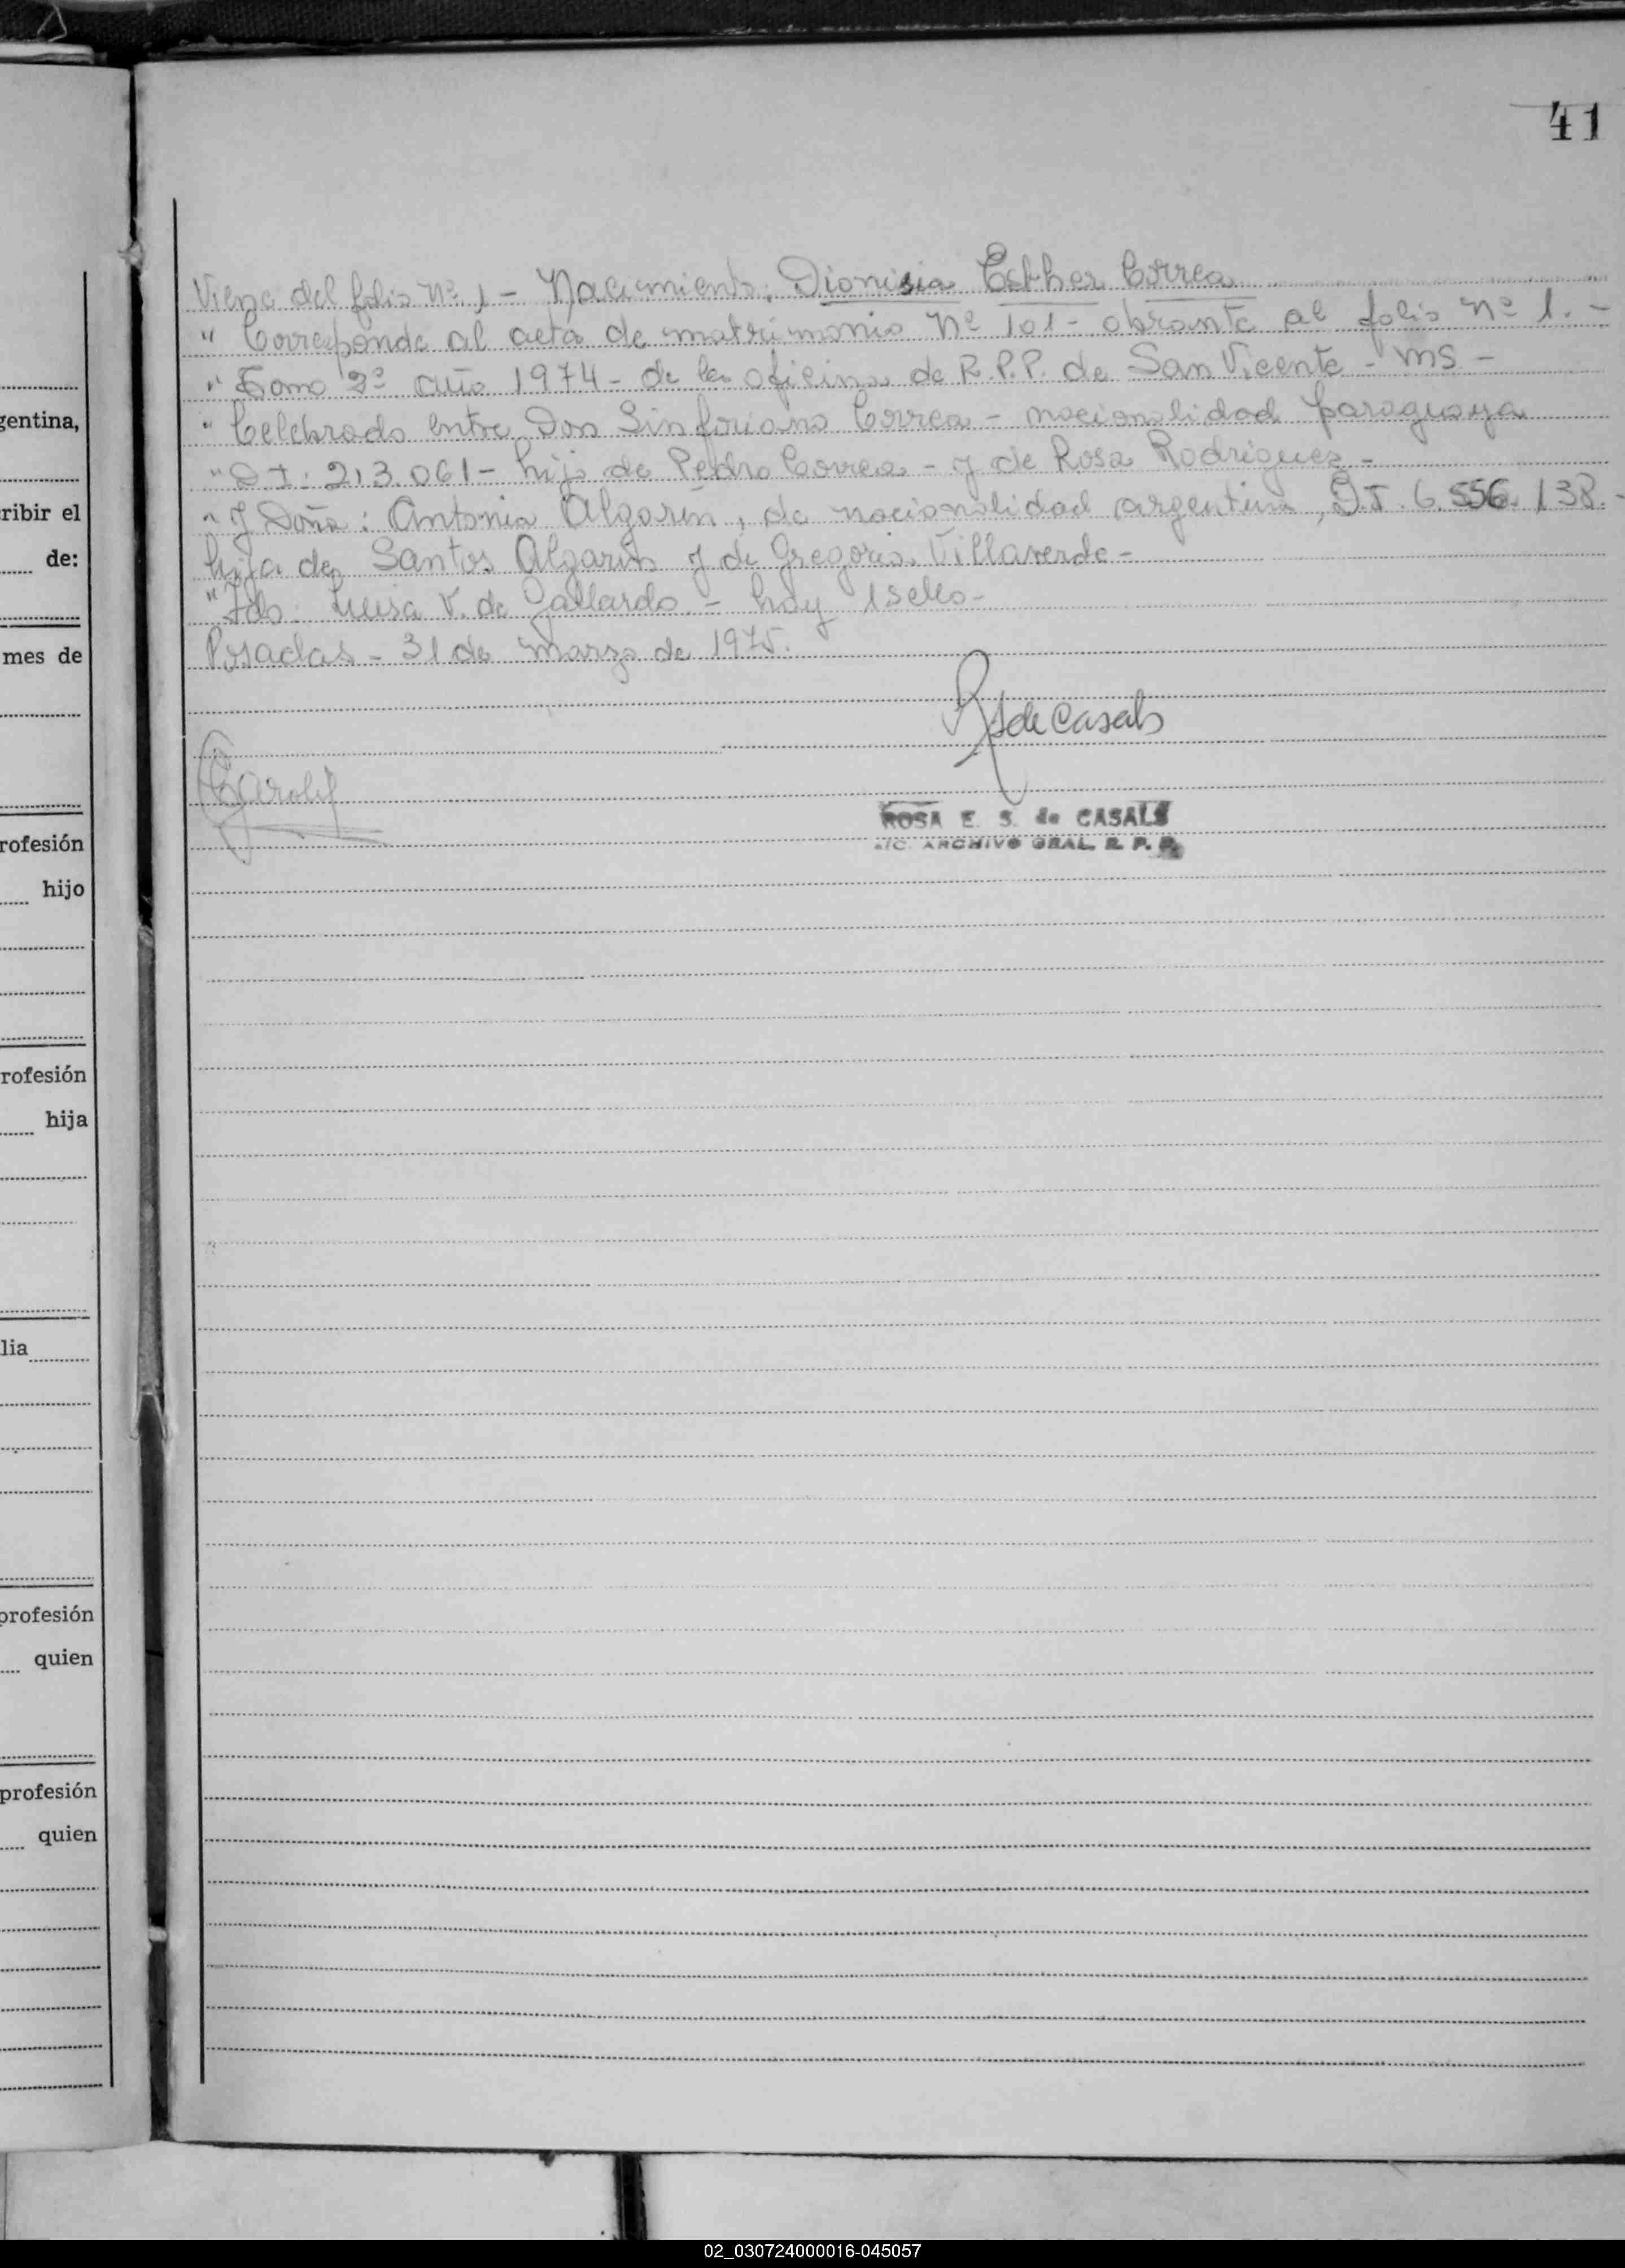 41
Viene del folio Nº 1 - Nacimiento: Dionisia Esther Correa
" Corresponde al acta de matrimonio Nº 101 - obrante al folio nº 1. -
" Tomo 2º año 1974 - de la oficina de R.P.P. de San Vicente - MS -
" Celebrado entre Don Sinforiano Correa - nacionalidad paraguaya
" D I: 213.061 - hijo de Pedro Correa - y de Rosa Rodriguez -
" y Doña: Antonia Algarín, de nacionalidad argentina, D.I. 6.556.138. -
hija de Santos Algarin y de Gregoria Villaverde -
" Fdo: Luisa V. de Gallardo. - hay 1 sello -
Posadas - 31 de marzo de 1975.
RSdeCasals
ROSA E. S. de CASALS
ARCHIVO GRAL. R. P. P.
gentina,
ribir el
de:
mes de
rofesión
hijo
rofesión
hija
lia
profesión
quien
profesión
quien
02_030724000016-045057